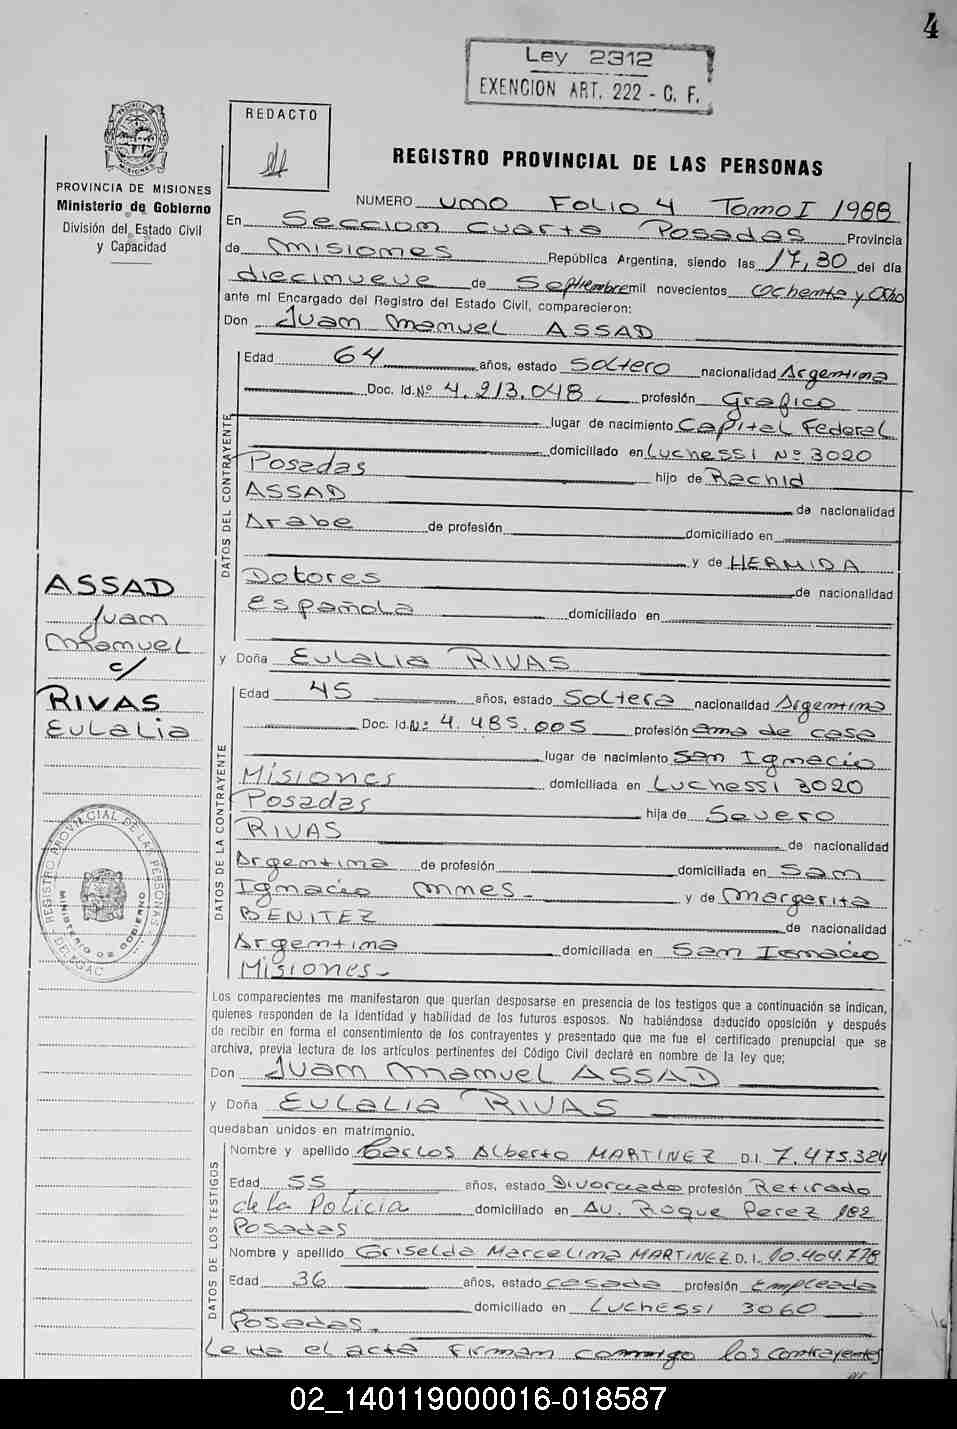 4
Ley 2312
EXENCION ART. 222 - C. F.
REDACTO
PROVINCIA DE MISIONES
Ministerio de Gobierno
División del Estado Civil
y Capacidad
REGISTRO PROVINCIAL DE LAS PERSONAS
NUMERO UNO FOLIO 4 Tomo I 1988
En Seccion Cuarta Posadas Provincia
de Misiones República Argentina, siendo las 17,30 del día
diecinueve de Septiembre mil novecientos ochenta y Ocho
ante mi Encargado del Registro del Estado Civil, comparecieron:
Don Juan Manuel ASSAD
DATOS DEL CONTRAYENTE
Edad 64 años, estado Soltero nacionalidad Argentina
Doc. Id. Nº 4.213.048 profesión Grafico
lugar de nacimiento Capital Federal
domiciliado en Luchessi Nº 3020
Posadas hijo de Rachid
ASSAD de nacionalidad
Arabe de profesión domiciliado en
y de HERMIDA
Dolores de nacionalidad
española domiciliado en
ASSAD
Juan
Manuel
c/
RIVAS
Eulalia
y Doña Eulalia RIVAS
DATOS DE LA CONTRAYENTE
Edad 45 años, estado Soltera nacionalidad Argentina
Doc. Id. Nº 4.485.005 profesión ama de casa
lugar de nacimiento San Ignacio
Misiones domiciliada en Luchessi 3020
Posadas hija de Severo
RIVAS de nacionalidad
Argentina de profesión domiciliado en San
Ignacio Mnes. y de Margarita
BENITEZ de nacionalidad
Argentina domiciliada en San Ignacio
Misiones.
REGISTRO PROVINCIAL DE LAS PERSONAS
MINISTERIO DE GOBIERNO
Los comparecientes me manifestaron que querían desposarse en presencia de los testigos que a continuación se indican,
quienes responden de la identidad y habilidad de los futuros esposos. No habiéndose deducido oposición y después
de recibir en forma el consentimiento de los contrayentes y presentado que me fue el certificado prenupcial que se
archiva, previa lectura de los artículos pertinentes del Código Civil declaré en nombre de la ley que;
Don Juan Manuel ASSAD
y Doña Eulalia RIVAS
quedaban unidos en matrimonio.
DATOS DE LOS TESTIGOS
Nombre y apellido Carlos Alberto MARTINEZ D.I. 7.475.384
Edad 55 años, estado Divorciado profesión Retirado
de la Policia domiciliado en Av. Roque Perez 182
Posadas
Nombre y apellido Griselda Marcelina MARTINEZ D.I. 10.404.778
Edad 36 años, estado casada profesión Empleada
domiciliado en Luchessi 3060
Posadas.
Leida el acta firman conmigo los contrayentes
02_140119000016-018587